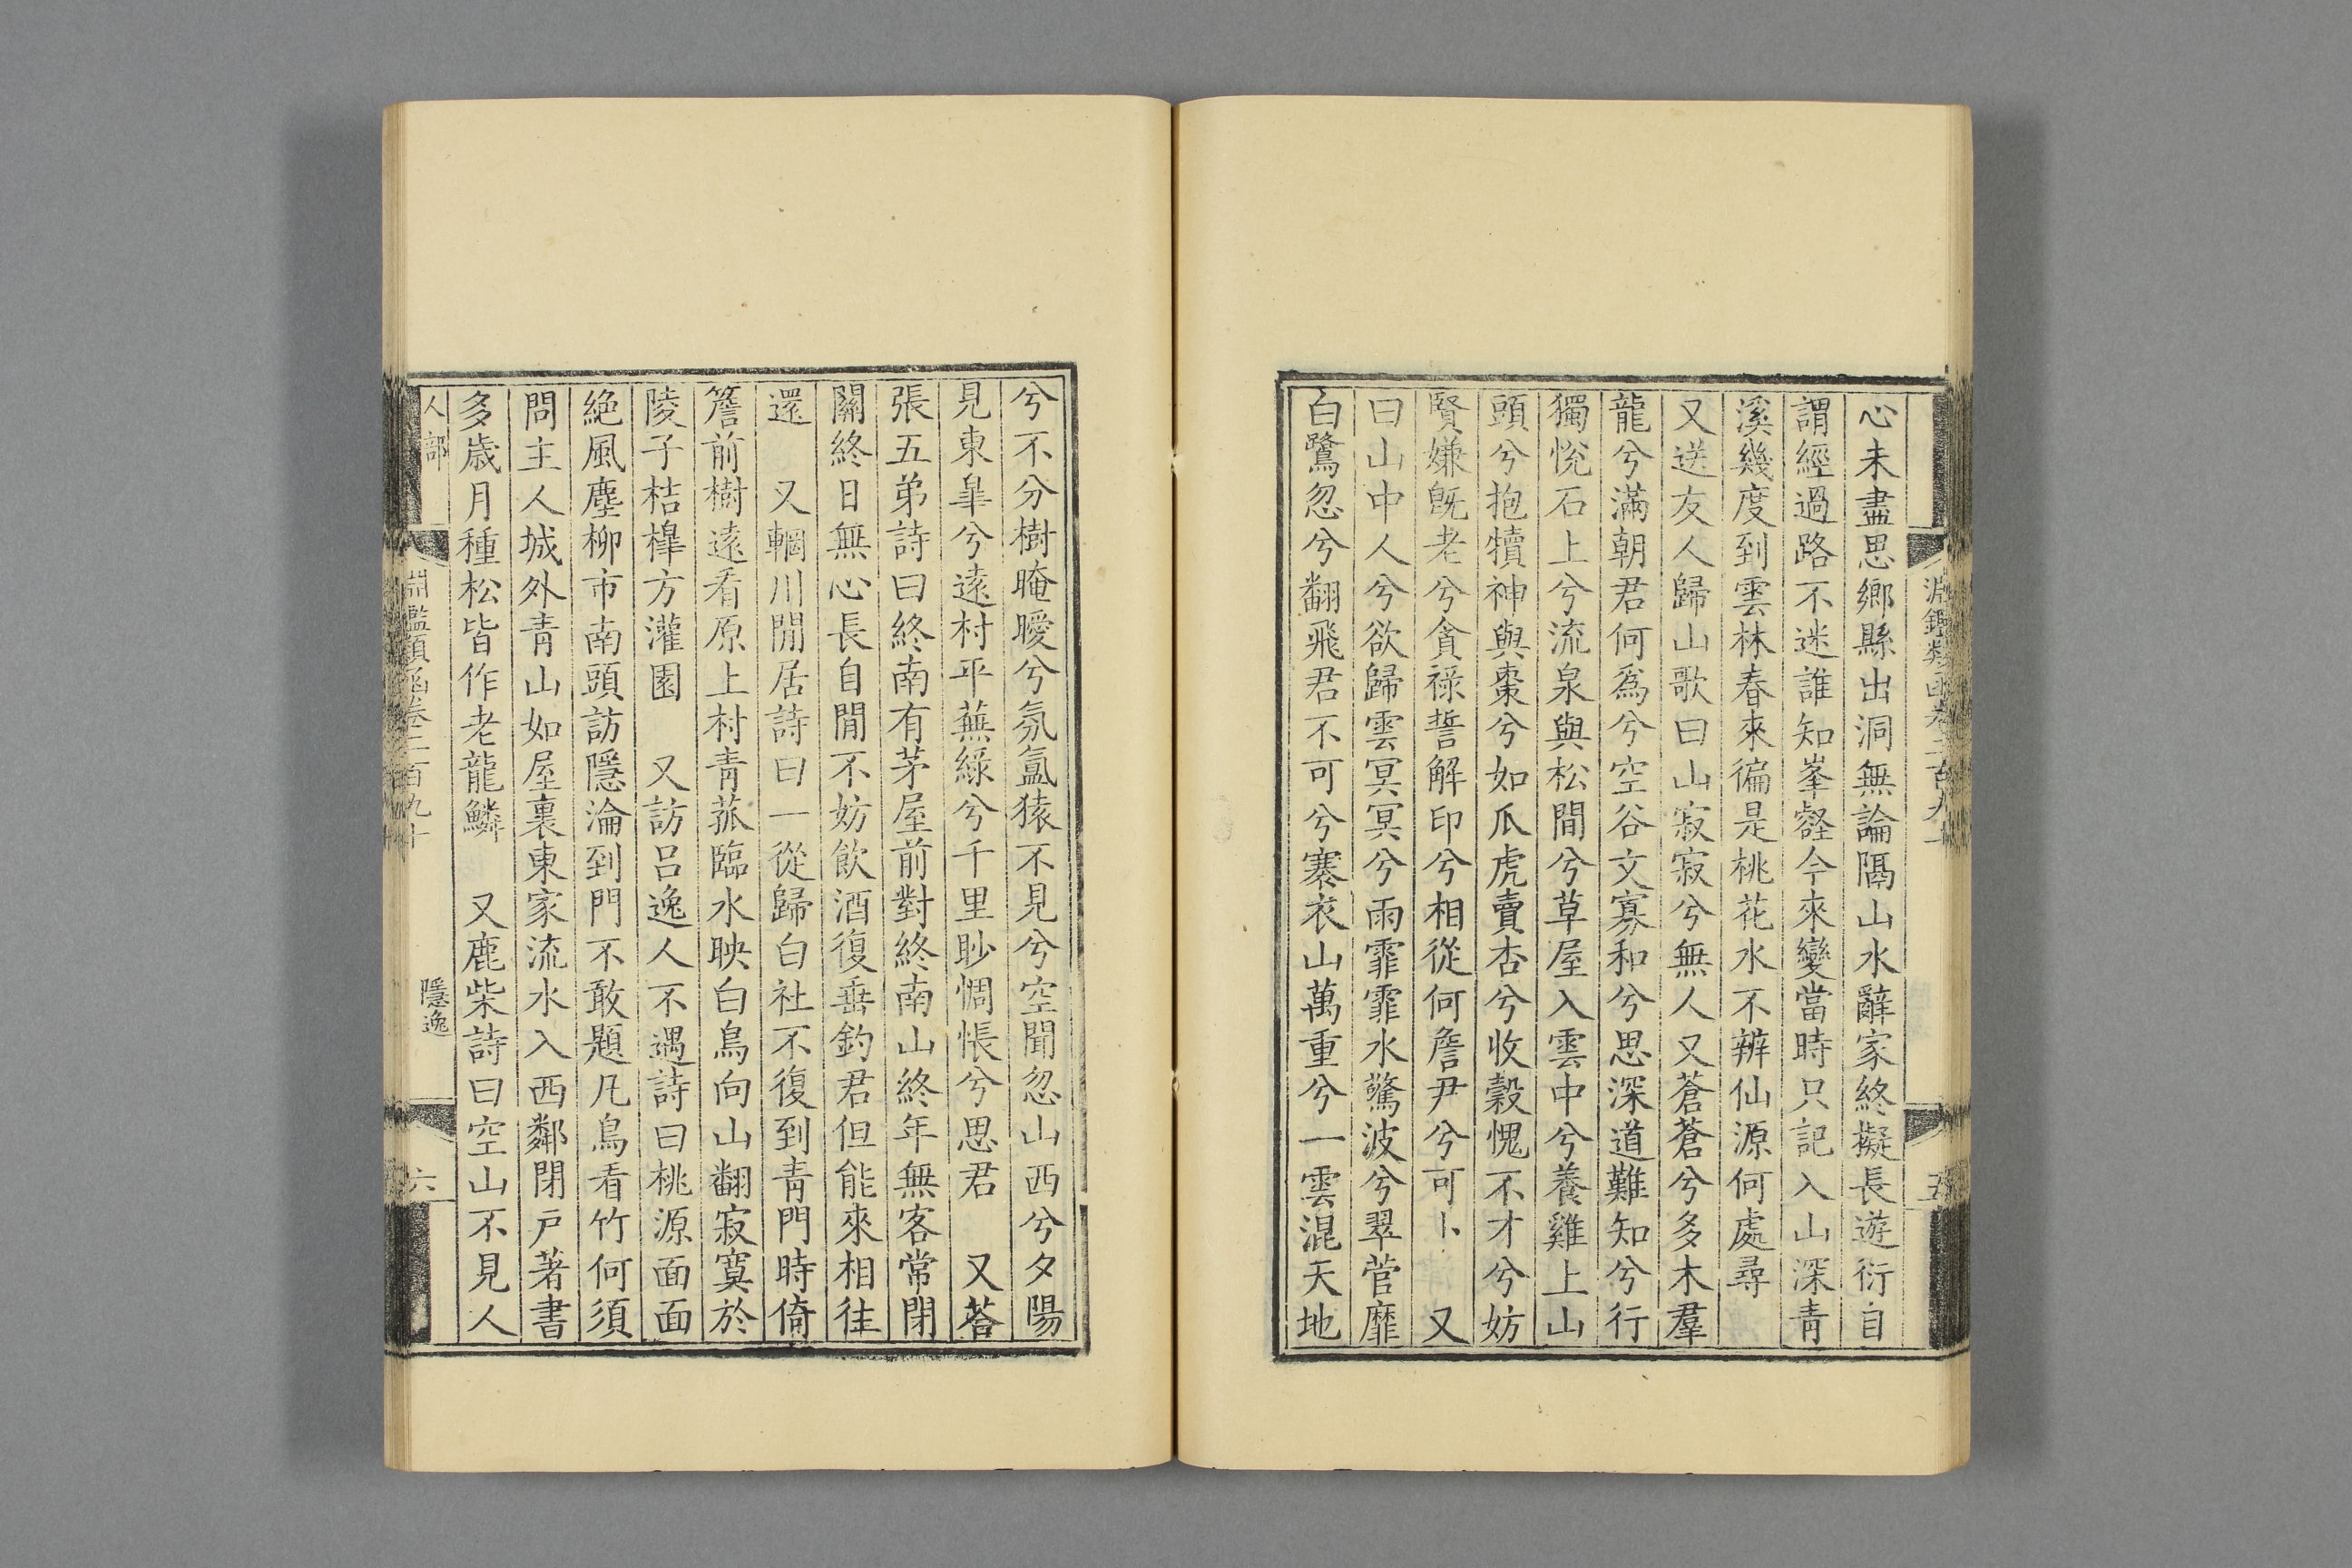 淵鑑類函卷二百九十
五
心未盡思鄉縣出洞無論隔山水辭家終擬長遊衍自
謂經過路不迷誰知峯壑今來變當時只記入山深青
溪幾度到雲林春來徧是桃花水不辨仙源何處尋
又送友人歸山歌曰山寂寂兮無人又蒼蒼兮多木羣
龍兮滿朝君何爲兮空谷文寡和兮思深道難知兮行
獨悅石上兮流泉與松間兮草屋入雲中兮養雞上山
頭兮抱犢神與棗兮如瓜虎賣杏兮收穀愧不才兮妨
賢嫌旣老兮貪祿誓解印兮相從何詹尹兮可卜 又
曰山中人兮欲歸雲冥冥兮雨霏霏水驚波兮翠菅靡
白鷺忽兮翻飛君不可兮褰衣山萬重兮一雲混天地
兮不分樹晻曖兮氛氳猿不見兮空聞忽山西兮夕陽
見東臯兮遠村平蕪綠兮千里眇惆悵兮思君 又荅
張五弟詩曰終南有茅屋前對終南山終年無客常閉
關終日無心長自閒不妨飲酒復垂釣君但能來相往
還 又輞川閒居詩曰一從歸白社不復到青門時倚
簷前樹遠看原上村青菰臨水映白鳥向山翻寂寞於
陵子桔槹方灌園 又訪呂逸人不遇詩曰桃源面面
絕風塵柳市南頭訪隱淪到門不敢題凡鳥看竹何須
問主人城外青山如屋裏東家流水入西鄰閉戶著書
多歲月種松皆作老龍鱗 又鹿柴詩曰空山不見人
人部
淵鑑類函卷二百九十
隱逸
六